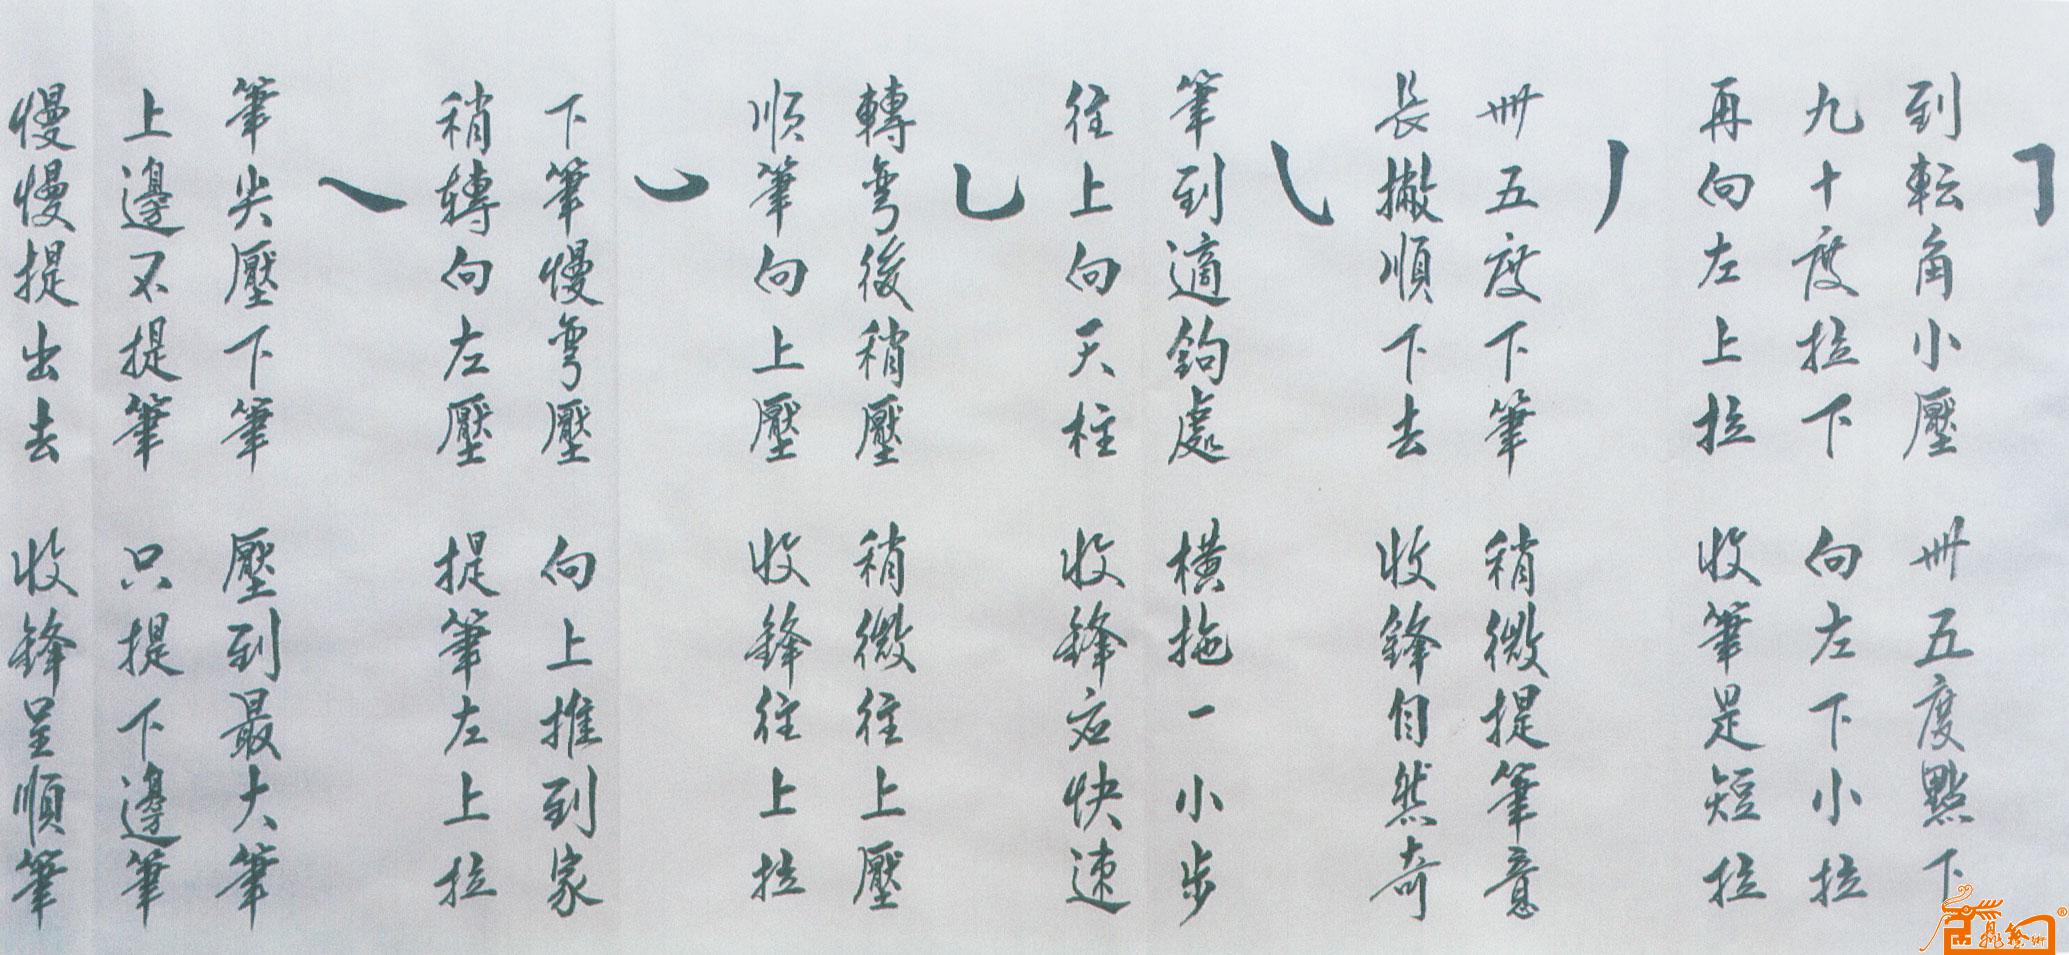 ㇆
到転角小壓 卌五度點下
九十度拉下 向左下小拉
再向左上拉 收筆是短拉
丿
卌五度下筆 稍微提筆意
長撇順下去 收鋒自然奇
㇂
筆到適鉤處 橫拖一小步
往上向天柱 收鋒应快速
乚
轉弯後稍壓 稍微往上壓
順筆向上壓 收鋒往上拉
㇃
下筆慢弯壓 向上推到家
稍轉向左壓 提筆左上拉
㇏
筆尖壓下筆 壓到最大筆
上邊不提筆 只提下邊筆
慢慢提出去 收鋒呈順筆